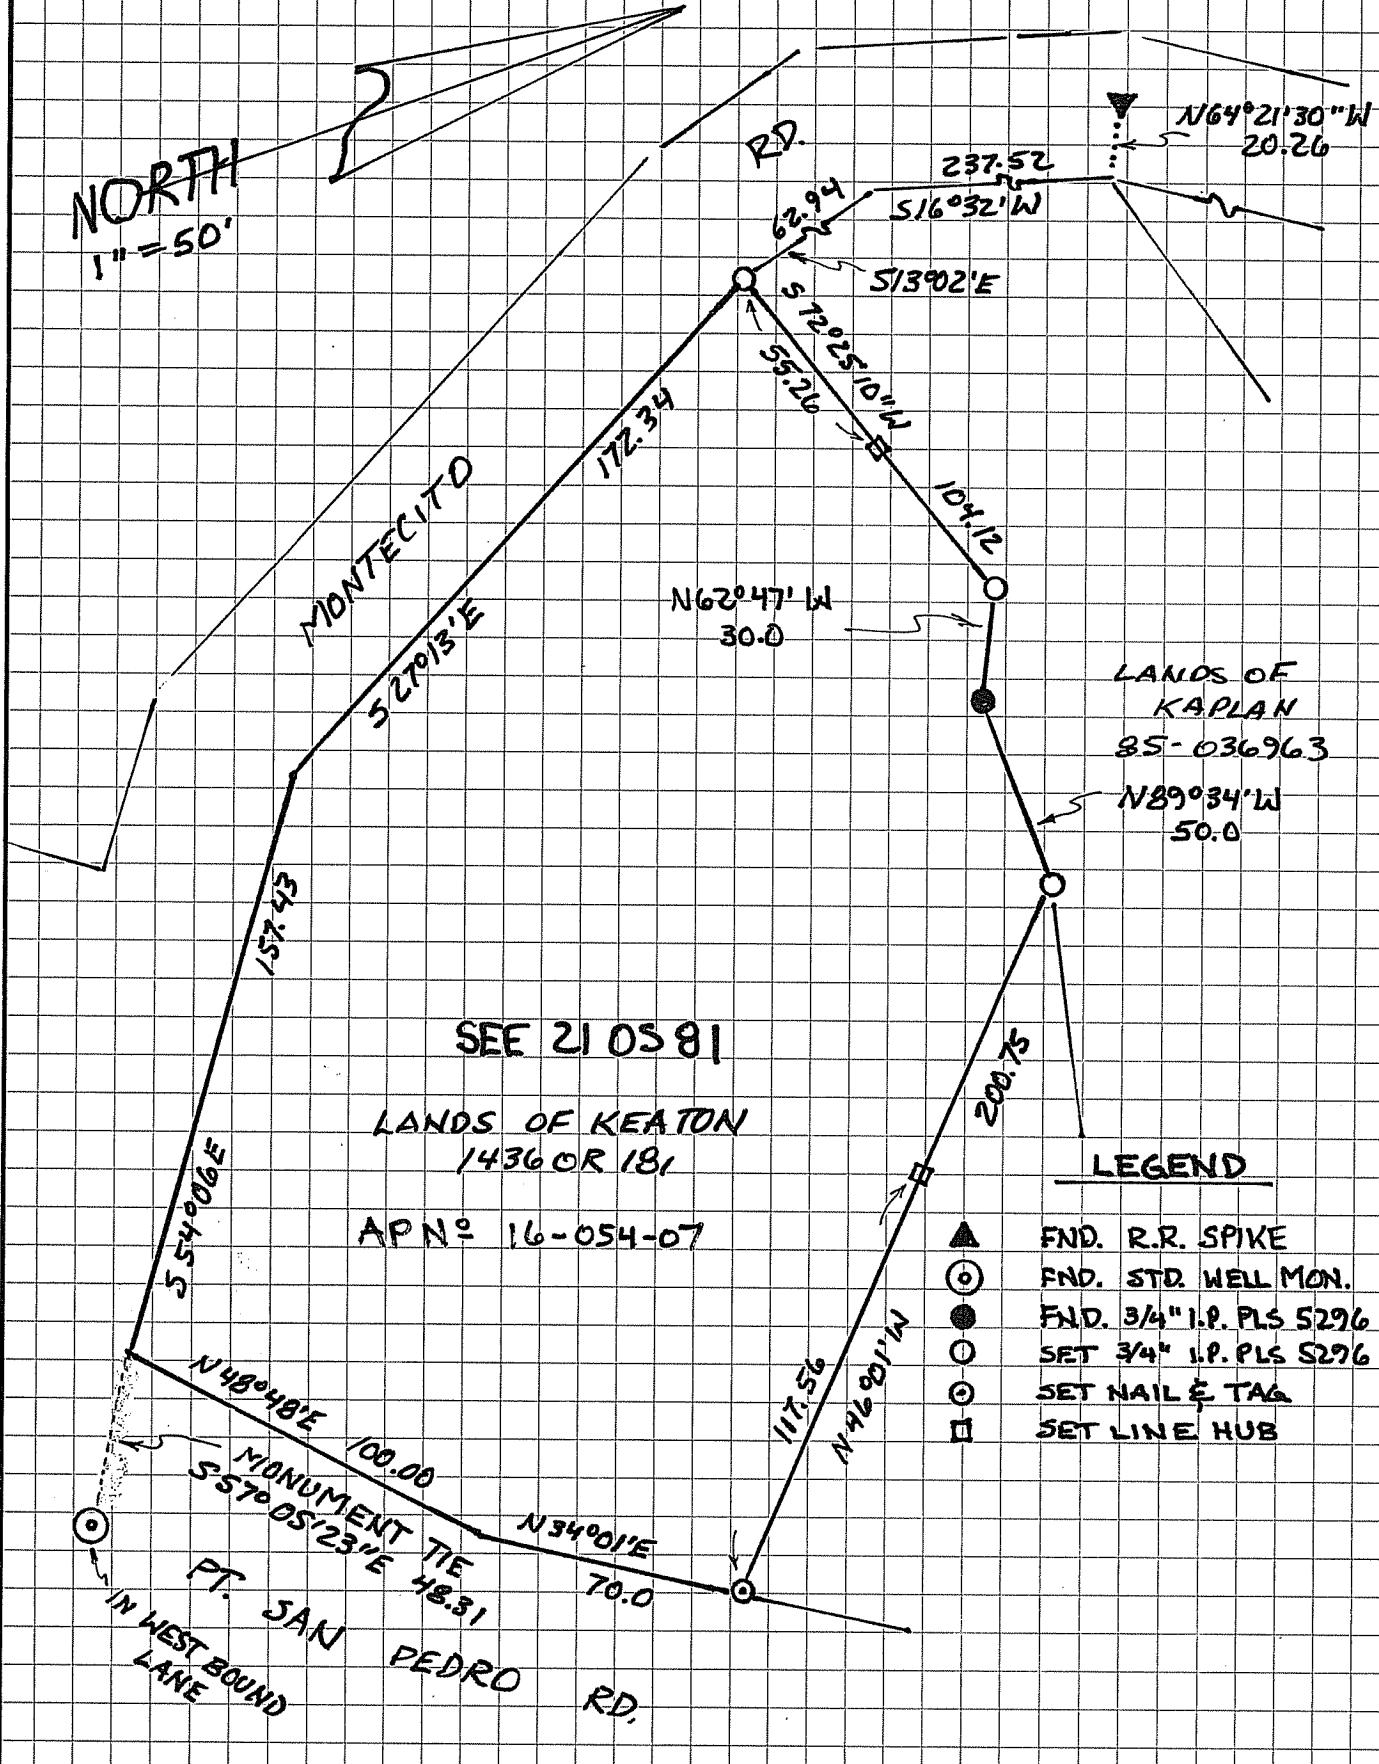 NORTH
1" = 50'
RD.
N64°21'30"W
20.26
237.52
S16°32'W
62.94
S13°02'E
S 72°25'10"W
55.26
104.12
172.34
S 27°13'E
MONTECITO
N62°47'W
30.0
LANDS OF
KAPLAN
85-036963
N89°34'W
50.0
157.43
S 54°06E
SEE 21 OS 81
LANDS OF KEATON
1436 OR 181
APNº 16-054-07
200.75
117.56
N46°01'W
LEGEND
FND. R.R. SPIKE
FND. STD. WELL MON.
FND. 3/4" I.P. PLS 5296
SET 3/4" I.P. PLS 5296
SET NAIL & TAG
SET LINE HUB
N48°48'E 100.00
MONUMENT TIE
S57°05'23"E 48.31
N34°01'E
70.0
IN WEST BOUND
LANE
PT. SAN PEDRO RD.